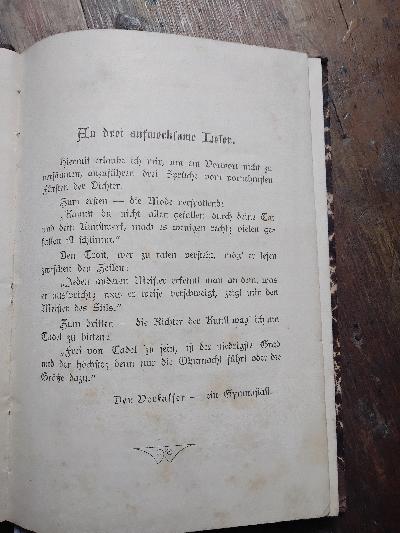 An drei aufmerksame Leser.
Hiermit erlaube ich mir, um ein Vorwort nicht zu
versäumen, anzuführen drei Sprüche vom vornehmsten
Fürsten der Dichter.
Zum ersten — die Mode verspottend:
„Kannst du nicht allen gefallen durch deine Tat
und dein Kunstwerk, mach es wenigen recht; vielen ge-
fallen ist schlimm.“
Den Trost, wer zu raten versteht, mög' er lesen
zwischen den Zeilen:
„Jeden anderen Meister erkennt man an dem, was
er ausspricht; was er weise verschweigt, zeigt mir den
Meister des Stils.“
Zum dritten — die Richter der Kunst wag' ich um
Tadel zu bitten:
„Frei von Tadel zu sein, ist der niedrigste Grad
und der höchste; denn nur die Ohnmacht führt oder die
Größe dazu.“
Der Verfasser — ein Gymnasiast.